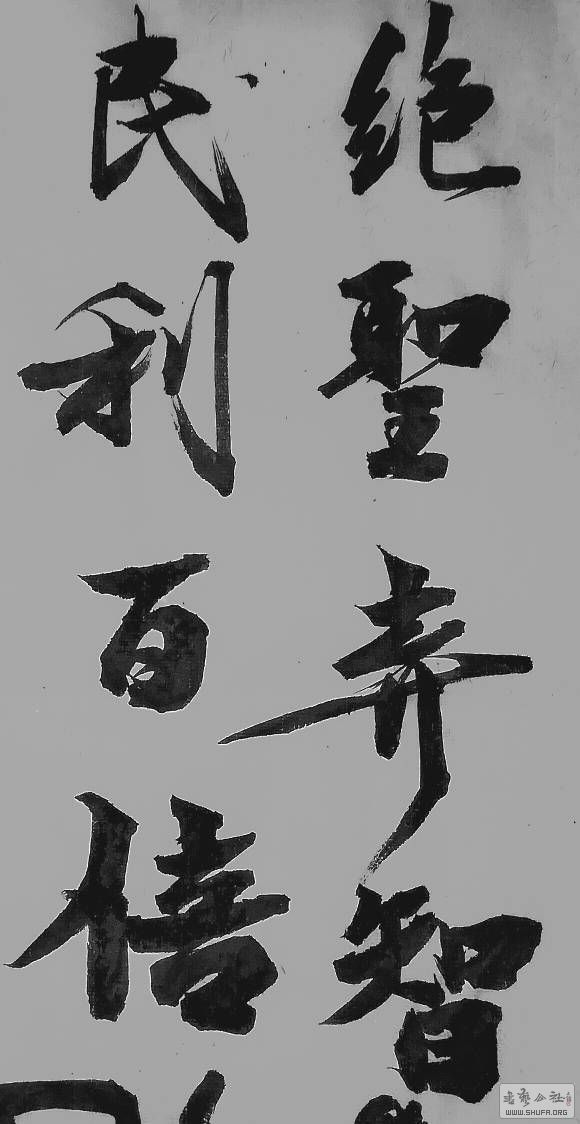 絶聖弃智
民利百倍
書藝公社
WWW.SHUFA.ORG